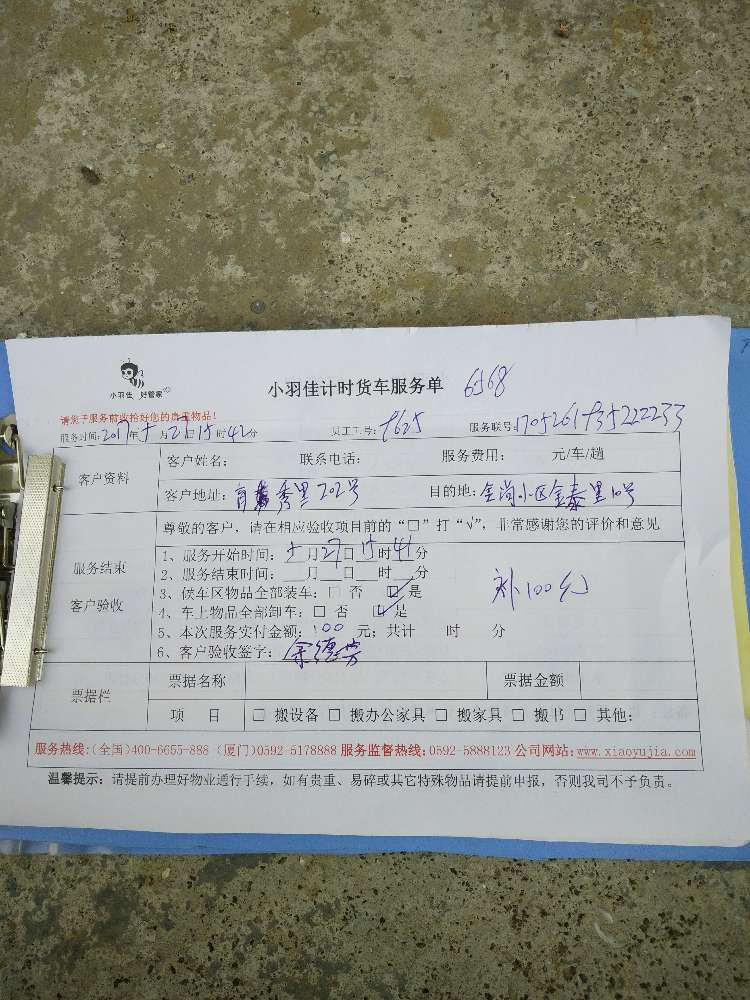 小羽佳 好管家
小羽佳计时货车服务单 6568
请您于服务前收拾好您的贵重物品!
服务时间:2017年5月27日15时42分 员工工号: 服务联号:170526
客户资料 客户姓名: 联系电话: 服务费用: 元/车/趟
客户地址: 秀里202号 目的地:金尚小区金泰里10号
尊敬的客户,请在相应验收项目前的“□”打“√”,非常感谢您的评价和意见
服务结束 客户验收
1、服务开始时间:5月27日15时41分
2、服务结束时间: 月 日 时 分
3、候车区物品全部装车:□ 否 □ 是
4、车上物品全部卸车:□ 否 ☑ 是
补100元
5、本次服务实付金额:100 元;共计 时 分
6、客户验收签字:余德芳
票据栏 票据名称 票据金额
项 目 □ 搬设备 □ 搬办公家具 □ 搬家具 □ 搬书 □ 其他:
服务热线:(全国)400-6655-888 (厦门)0592-5178888 服务监督热线:0592-5888123 公司网站:www.xiaoyujia.com
温馨提示:请提前办理好物业通行手续,如有贵重、易碎或其它特殊物品请提前申报,否则我司不予负责。